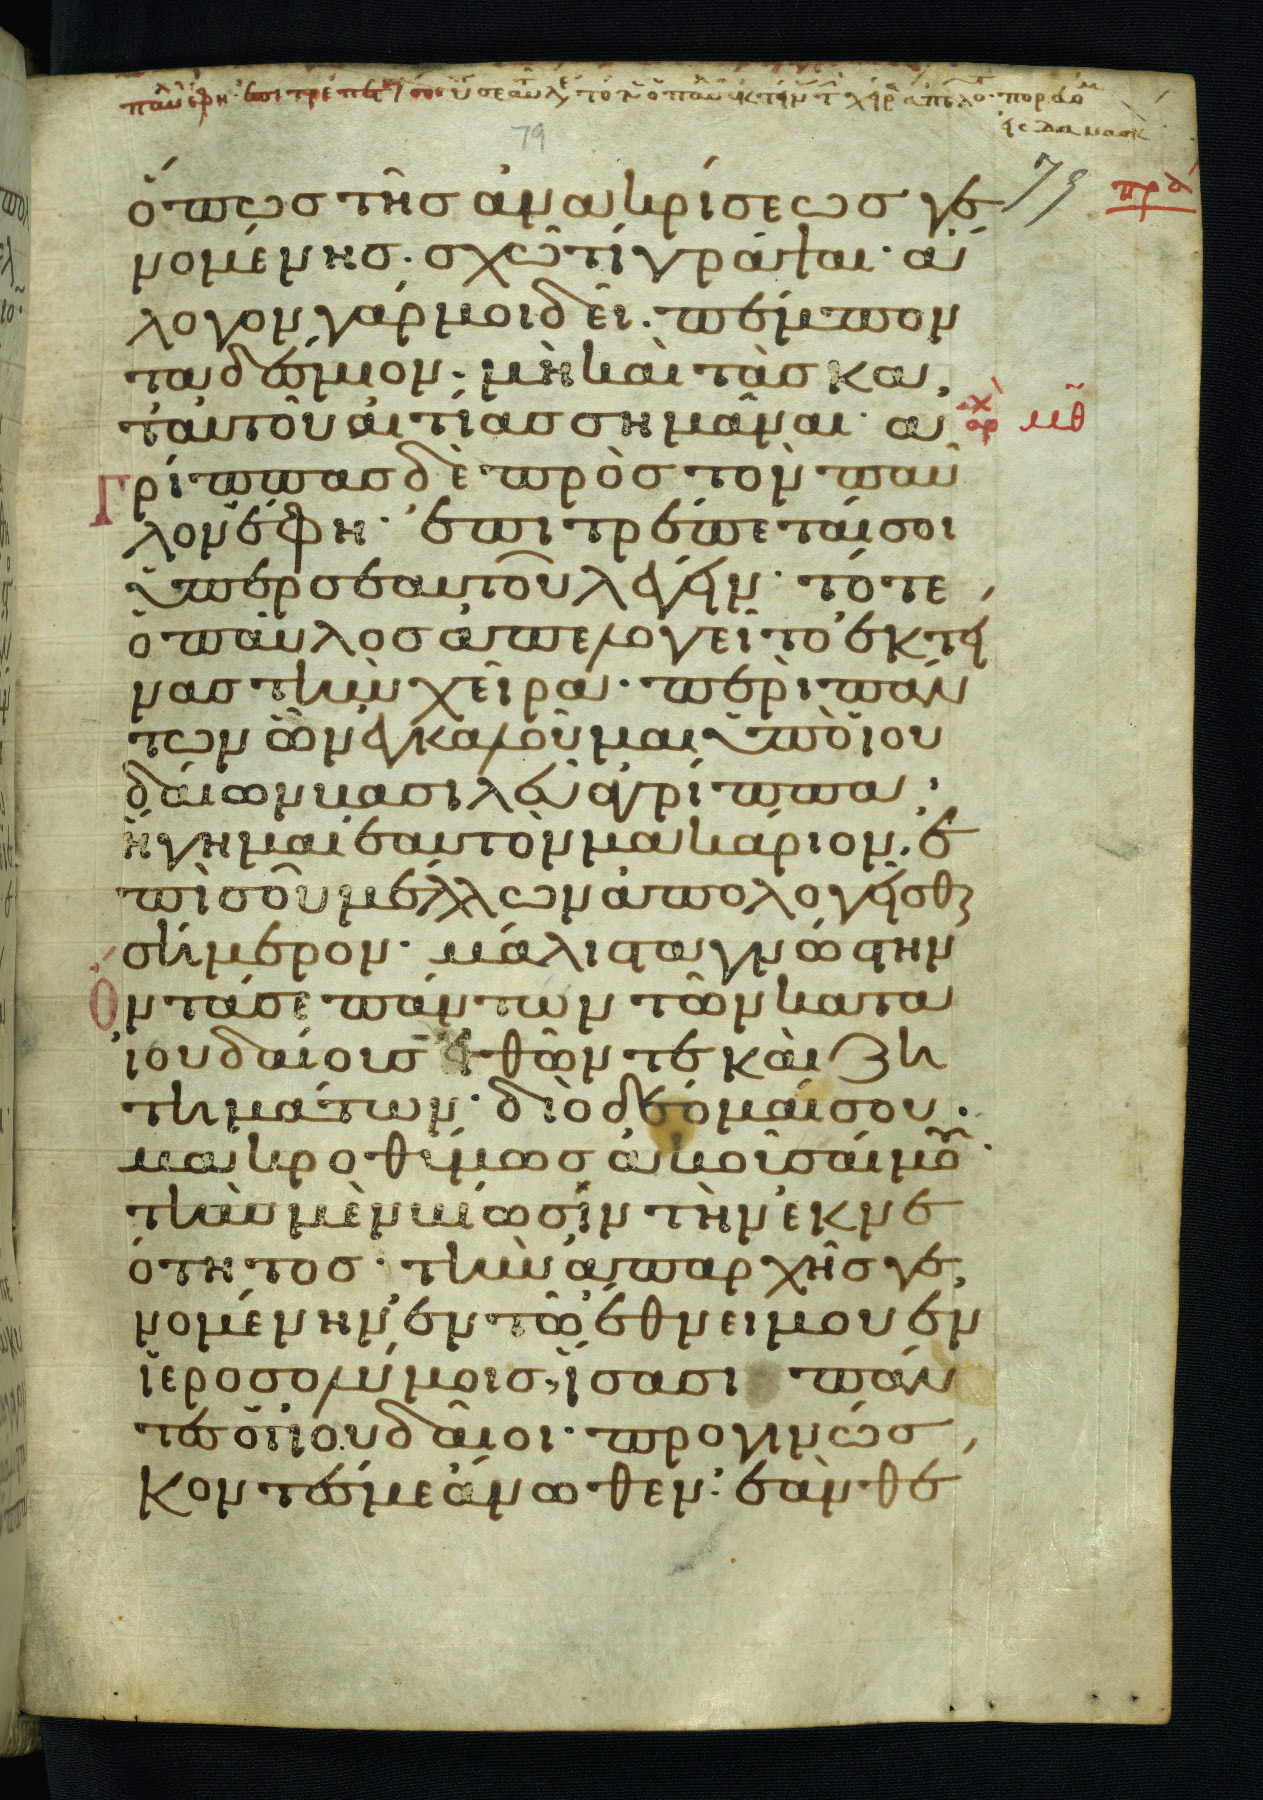 79
79
πρά
ὅπωσ τῆσ ἀνακρίσεωσ γε
νομένησ. σχῶ τί γράψαι· ἄ
λογον γάρ μοι δεῖ. πέμπον
τα δέσμιον· μὴ καὶ τὰσ κα
τ' αὐτοῦ αἰτίασ σημᾶναι· ἀ
ἀρχ μθ
γρίππασ δὲ πρὸσ τὸν παῦ
λον ἔφη· ἐπιτρέπεταί σοι
ὑπὲρ σεαυτοῦ λέγειν· τότε
ὁ παῦλοσ ἀπελογεῖτο ἐκτεί
νασ τὴν χεῖρα· περὶ πάν
των ὧν ἐγκαλοῦμαι ὑπὸ ἰου
δαίων βασιλεῦ ἀγρίππα,
ἥγημαι ἐμαυτὸν μακάριον, ἐ
πὶ σοῦ μέλλων ἀπολογεῖσθαι
σήμερον· μάλιστα γνώστην
ὄντα σε πάντων τῶν κατα
ἰουδαίουσ ἐθῶν τε καὶ ζη
τημάτων· διὸ δέομαί σου.
μακροθύμωσ ἀκοῦσαί μου·
τὴν μὲν βίωσίν τὴν ἐκ νε
ότητοσ· τὴν ἀπαρχῆσ γε
νομένην ἐν τῶ ἔθνει μου ἐν
ἱεροσολύμοισ, ἴσασι πάν
τεσ οἱ ἰουδαῖοι· προγινώσ
κοντέσ με ἄνωθεν· ἐὰν θέ